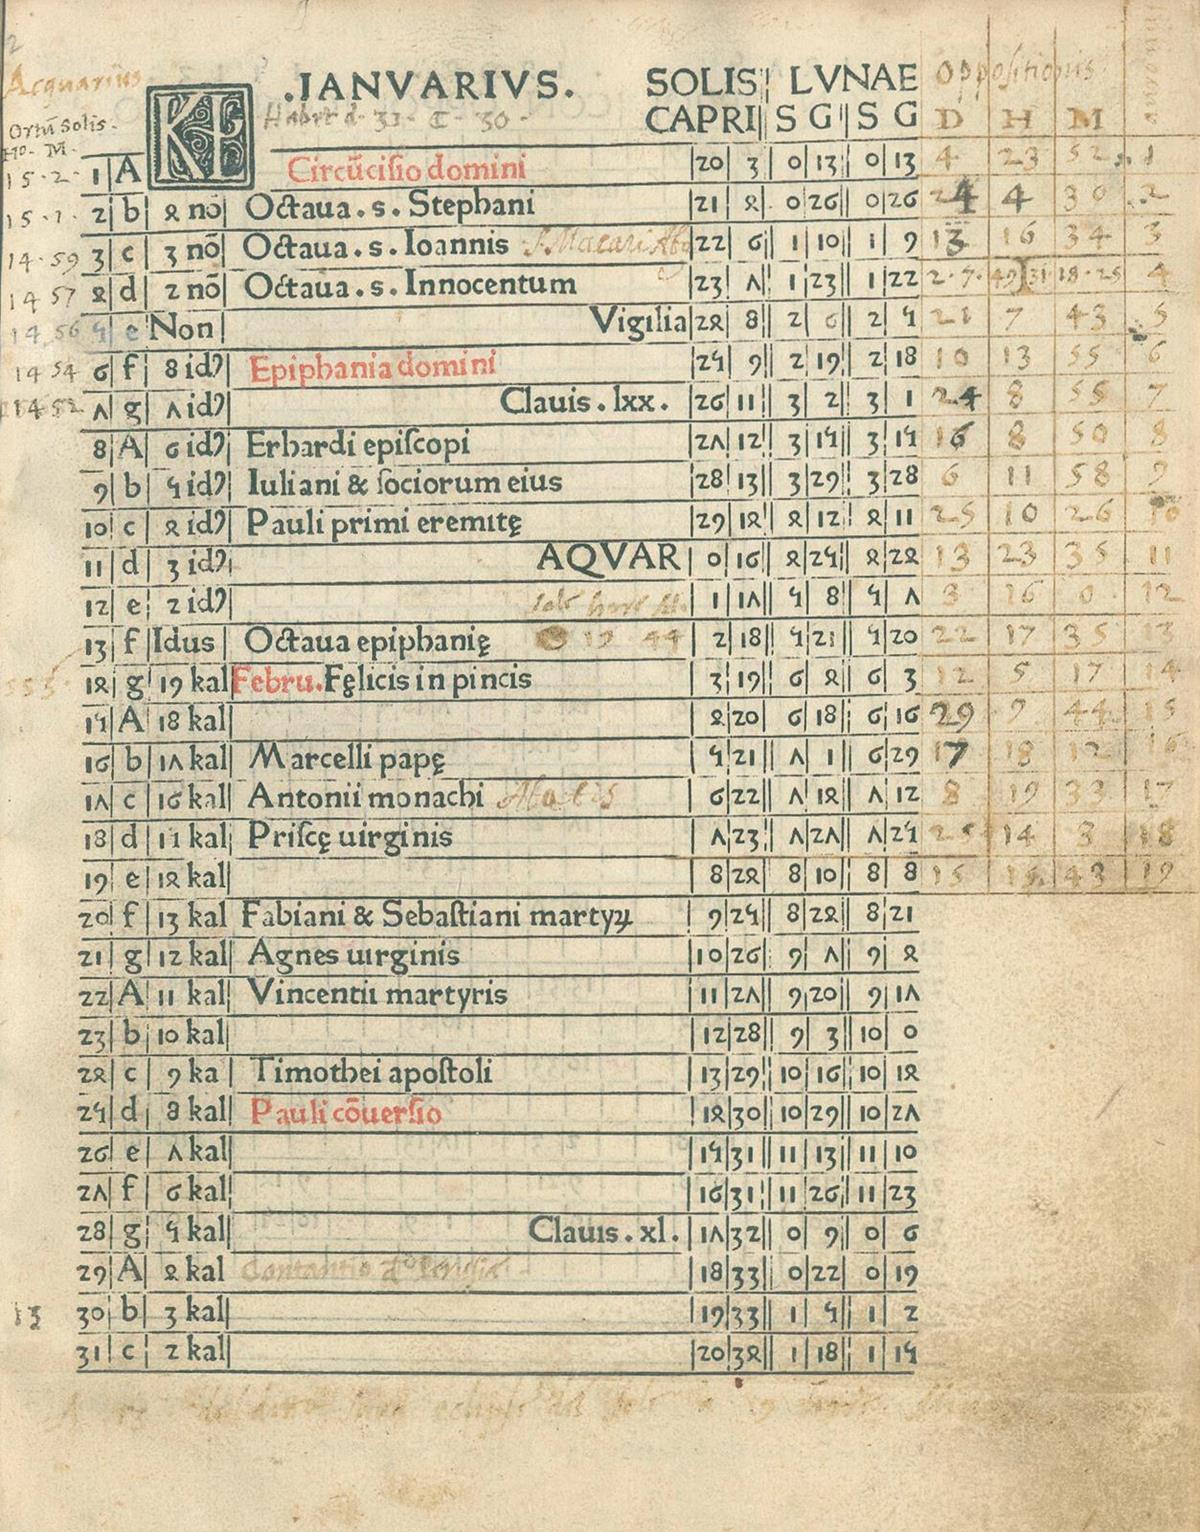 Acquarius .IANVARIVS. SOLIS LVNAE Oppositionis
Ortũ Solis. KL Habet d. 31 CAPRI S G S G D H M
Ho. M.
15·2· 1 A Circũciſio domini 20 3 0 13 0 13 4 23 52 1
15·1· 2 b 4 nõ Octaua.s.Stephani 21 4 0 26 0 26 24 4 30 2
14·59 3 c 3 nõ Octaua.s.Ioannis 22 6 1 10 1 9 13 16 34 3
14 57 4 d 2 nõ Octaua.s.Innocentum 23 7 1 23 1 22 2·7· 49 31 18·25 4
14.56 5 e Non Vigilia 24 8 2 6 2 5 21 7 43 5
14 54 6 f 8 idꝰ Epiphania domini 25 9 2 19 2 18 10 13 55 6
14 52 7 g 7 idꝰ Clauis.lxx. 26 11 3 2 3 1 24 8 55 7
8 A 6 idꝰ Erhardi epiſcopi 27 12 3 15 3 15 16 8 50 8
9 b 5 idꝰ Iuliani & ſociorum eius 28 13 3 29 3 28 6 11 58 9
10 c 4 idꝰ Pauli primi eremitę 29 14 4 12 4 11 25 10 26 10
11 d 3 idꝰ AQVAR 0 16 4 25 4 24 13 23 35 11
12 e 2 idꝰ 1 17 5 8 5 7 3 16 0 12
13 f Idus Octaua epiphanię 19 44 2 18 5 21 5 20 22 17 35 13
14 g 19 kal Febru. Fęlicis in pincis 3 19 6 4 6 3 12 5 17 14
15 A 18 kal 4 20 6 18 6 16 29 9 44 15
16 b 17 kal Marcelli papę 5 21 7 1 6 29 17 18 12 16
17 c 16 kal Antonii monachi Abatis 6 22 7 14 7 12 8 19 33 17
18 d 15 kal Priſcę uirginis 7 23 7 27 7 25 25 14 3 18
19 e 14 kal 8 24 8 10 8 8 15 15 43 19
20 f 13 kal Fabiani & Sebaſtiani martyꝝ 9 25 8 24 8 21
21 g 12 kal Agnes uirginis 10 26 9 7 9 4
22 A 11 kal Vincentii martyris 11 27 9 20 9 17
23 b 10 kal 12 28 9 3 10 0
24 c 9 ka Timothei apoſtoli 13 29 10 16 10 14
25 d 8 kal Pauli cõuerſio 14 30 10 29 10 27
26 e 7 kal 15 31 11 13 11 10
27 f 6 kal 16 31 11 26 11 23
28 g 5 kal Clauis.xl. 17 32 0 9 0 6
29 A 4 kal 18 33 0 22 0 19
13 30 b 3 kal 19 33 1 5 1 2
31 c 2 kal 20 34 1 18 1 15